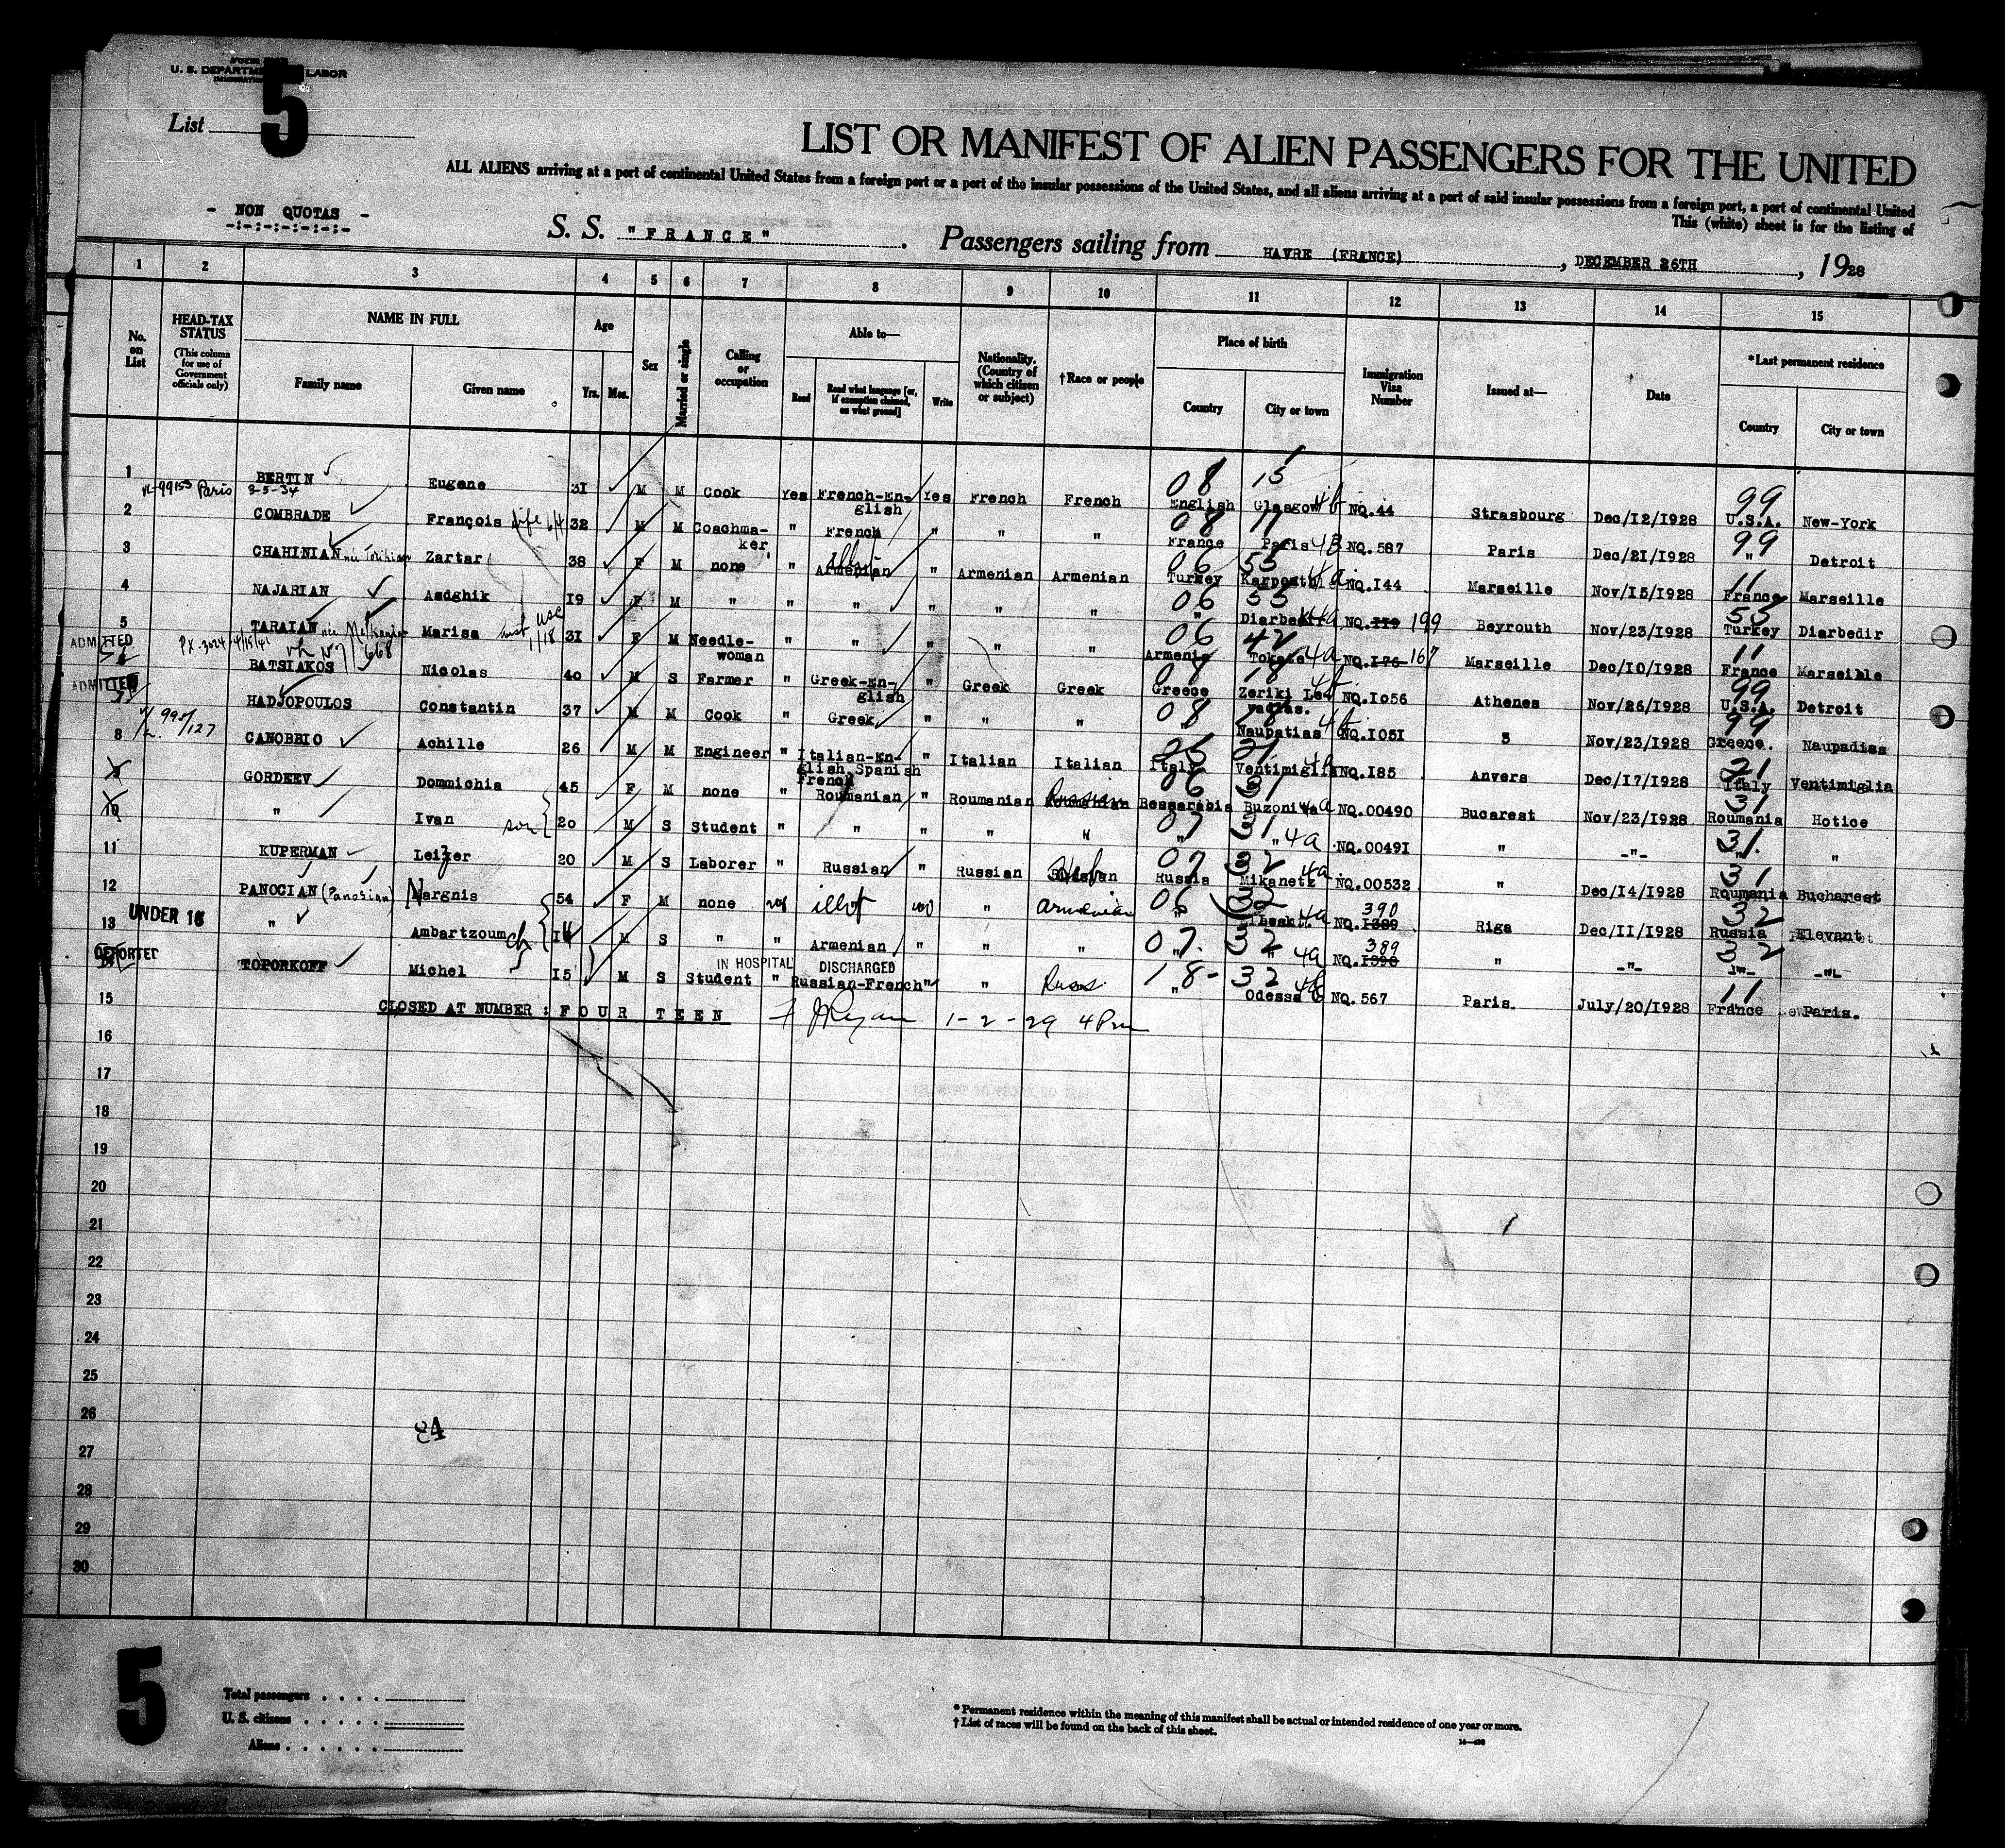 U. S. DEPARTMENT LABOR
List 5
LIST OR MANIFEST OF ALIEN PASSENGERS FOR THE UNITED
ALL ALIENS arriving at a port of continental United States from a foreign port or a port of the insular possessions of the United States, and all aliens arriving at a port of said insular possessions from a foreign port, a port of continental United
This (white) sheet is for the listing of
- NON QUOTAS -
S. S. "FRANCE". Passengers sailing from HAVRE (FRANCE), DECEMBER 26TH, 1928
1 2 3 4 5 6 7 8 9 10 11 12 13 14 15
No. on List
HEAD-TAX STATUS
(This column for use of Government officials only)
NAME IN FULL
Family name Given name
Age
Yrs. Mos.
Sex
Married or single
Calling or occupation
Able to—
Read Read what language [or, if exemption claimed, on what ground] Write
Nationality. (Country of which citizen or subject)
†Race or people
Place of birth
Country City or town
Immigration Visa Number
Issued at—
Date
*Last permanent residence
Country City or town
1 BERTIN Eugene 31 M M Cook Yes French-English Yes French French 08 15 English Glasgow NO.44 Strasbourg Dec/12/1928 99 U.S.A. New-York
Paris 2-5-34
2 COMBRADE François 32 M M Coachmaker " French " " " 08 11 France Paris NO.587 Paris Dec/21/1928 99 " Detroit
3 CHAHINIAN Zartar 38 F M none " Armenian " Armenian Armenian 06 55 Turkey NO.144 Marseille Nov/15/1928 11 France Marseille
4 NAJARIAN Asdghik 19 F M " " " " " " 06 55 " NO.119 199 Beyrouth Nov/23/1928 55 Turkey Diarbedir
5 TARAIAN Marisa 31 F M Needle-woman " " " " " 06 Armenia NO.176 167 Marseille Dec/10/1928 11 France Marseille
ADMITTED BATSIAKOS Nicolas 40 M S Farmer " Greek-English " Greek Greek Greece Zeriki NO.1056 Athenes Nov/26/1928 99 U.S.A. Detroit
ADMITTED HADJOPOULOS Constantin 37 M M Cook " Greek " " " 08 Naupatias NO.1051 Nov/23/1928 99 Greece. Naupadias
8 CANOBBIO Achille 26 M M Engineer " Italian-English Spanish French " Italian Italian Italy Ventimiglia NO.185 Anvers Dec/17/1928 21 Italy Ventimiglia
9 GORDEEV Dommichia 45 F M none " Roumanian " Roumanian Russian 06 31 Bessarabia NO.00490 Bucarest Nov/23/1928 31 Roumania Hotice
10 " Ivan son 20 M S Student " " " " " 07 31 " " 4a NO.00491 " -"- 31. " "
11 KUPERMAN Leizer 20 M S Laborer " Russian " Russian 07 32 Russia Mikanetz NO.00532 " Dec/14/1928 31 Roumania Bucharest
12 PANOCIAN (Panosian) Nargnis 54 F M none no no " Armenian 06 32 " 4a 390 Riga Dec/11/1928 32 Russia Elevant
13 UNDER 16 " Ambartzoum ch M S " " Armenian " " " 07. 32 " 4a 389 " -"- 32 -"- -"-
DEPORTED TOPORKOFF Michel 15 M S Student IN HOSPITAL DISCHARGED " Russian-French " " 18-32 " Odessa NO.567 Paris. July/20/1928 11 France Paris.
15 CLOSED AT NUMBER : FOUR TEEN 1-2-29 4 Pm
16
17
18
19
20
21
22
23
24
25
26
27
28
29
30
5
Total passengers
U. S. citizens
Aliens
* Permanent residence within the meaning of this manifest shall be actual or intended residence of one year or more.
† List of races will be found on the back of this sheet.